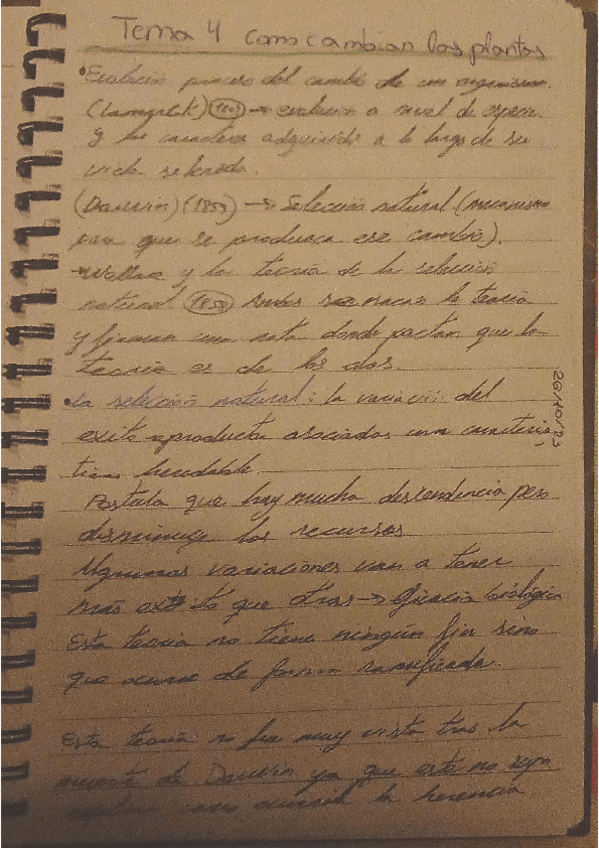 Tema 4 como cambian las plantas
• Evolución proceso del cambio de un organismo.
(Lamarck) (1809) → evolución a nivel de especie.
y los caracteres adquiridos a lo largo de su
vida
(Darwin) (1859) → Selección natural (mecanismo
para que se produzca ese cambio).
→ Wallace y la teoría de la selección
natural (1858) Ambos sacan la teoría
y firman una nota donde pactan que la
teoría es de los dos.
• la selección natural: la variación del
exito asociados una caracterís-
tica heredable.
Postula que hay mucha descendencia pero
disminuye los recursos
Algunas variaciones van a tener
más exito que otras → eficacia biológica
Esta teoría no tiene ningún fin sino
que ocurre de forma ramificada.
Esta teoría no fue muy vista tras la
muerte de Darwin ya que este no supo
como ocurría la herencia
20/10/23